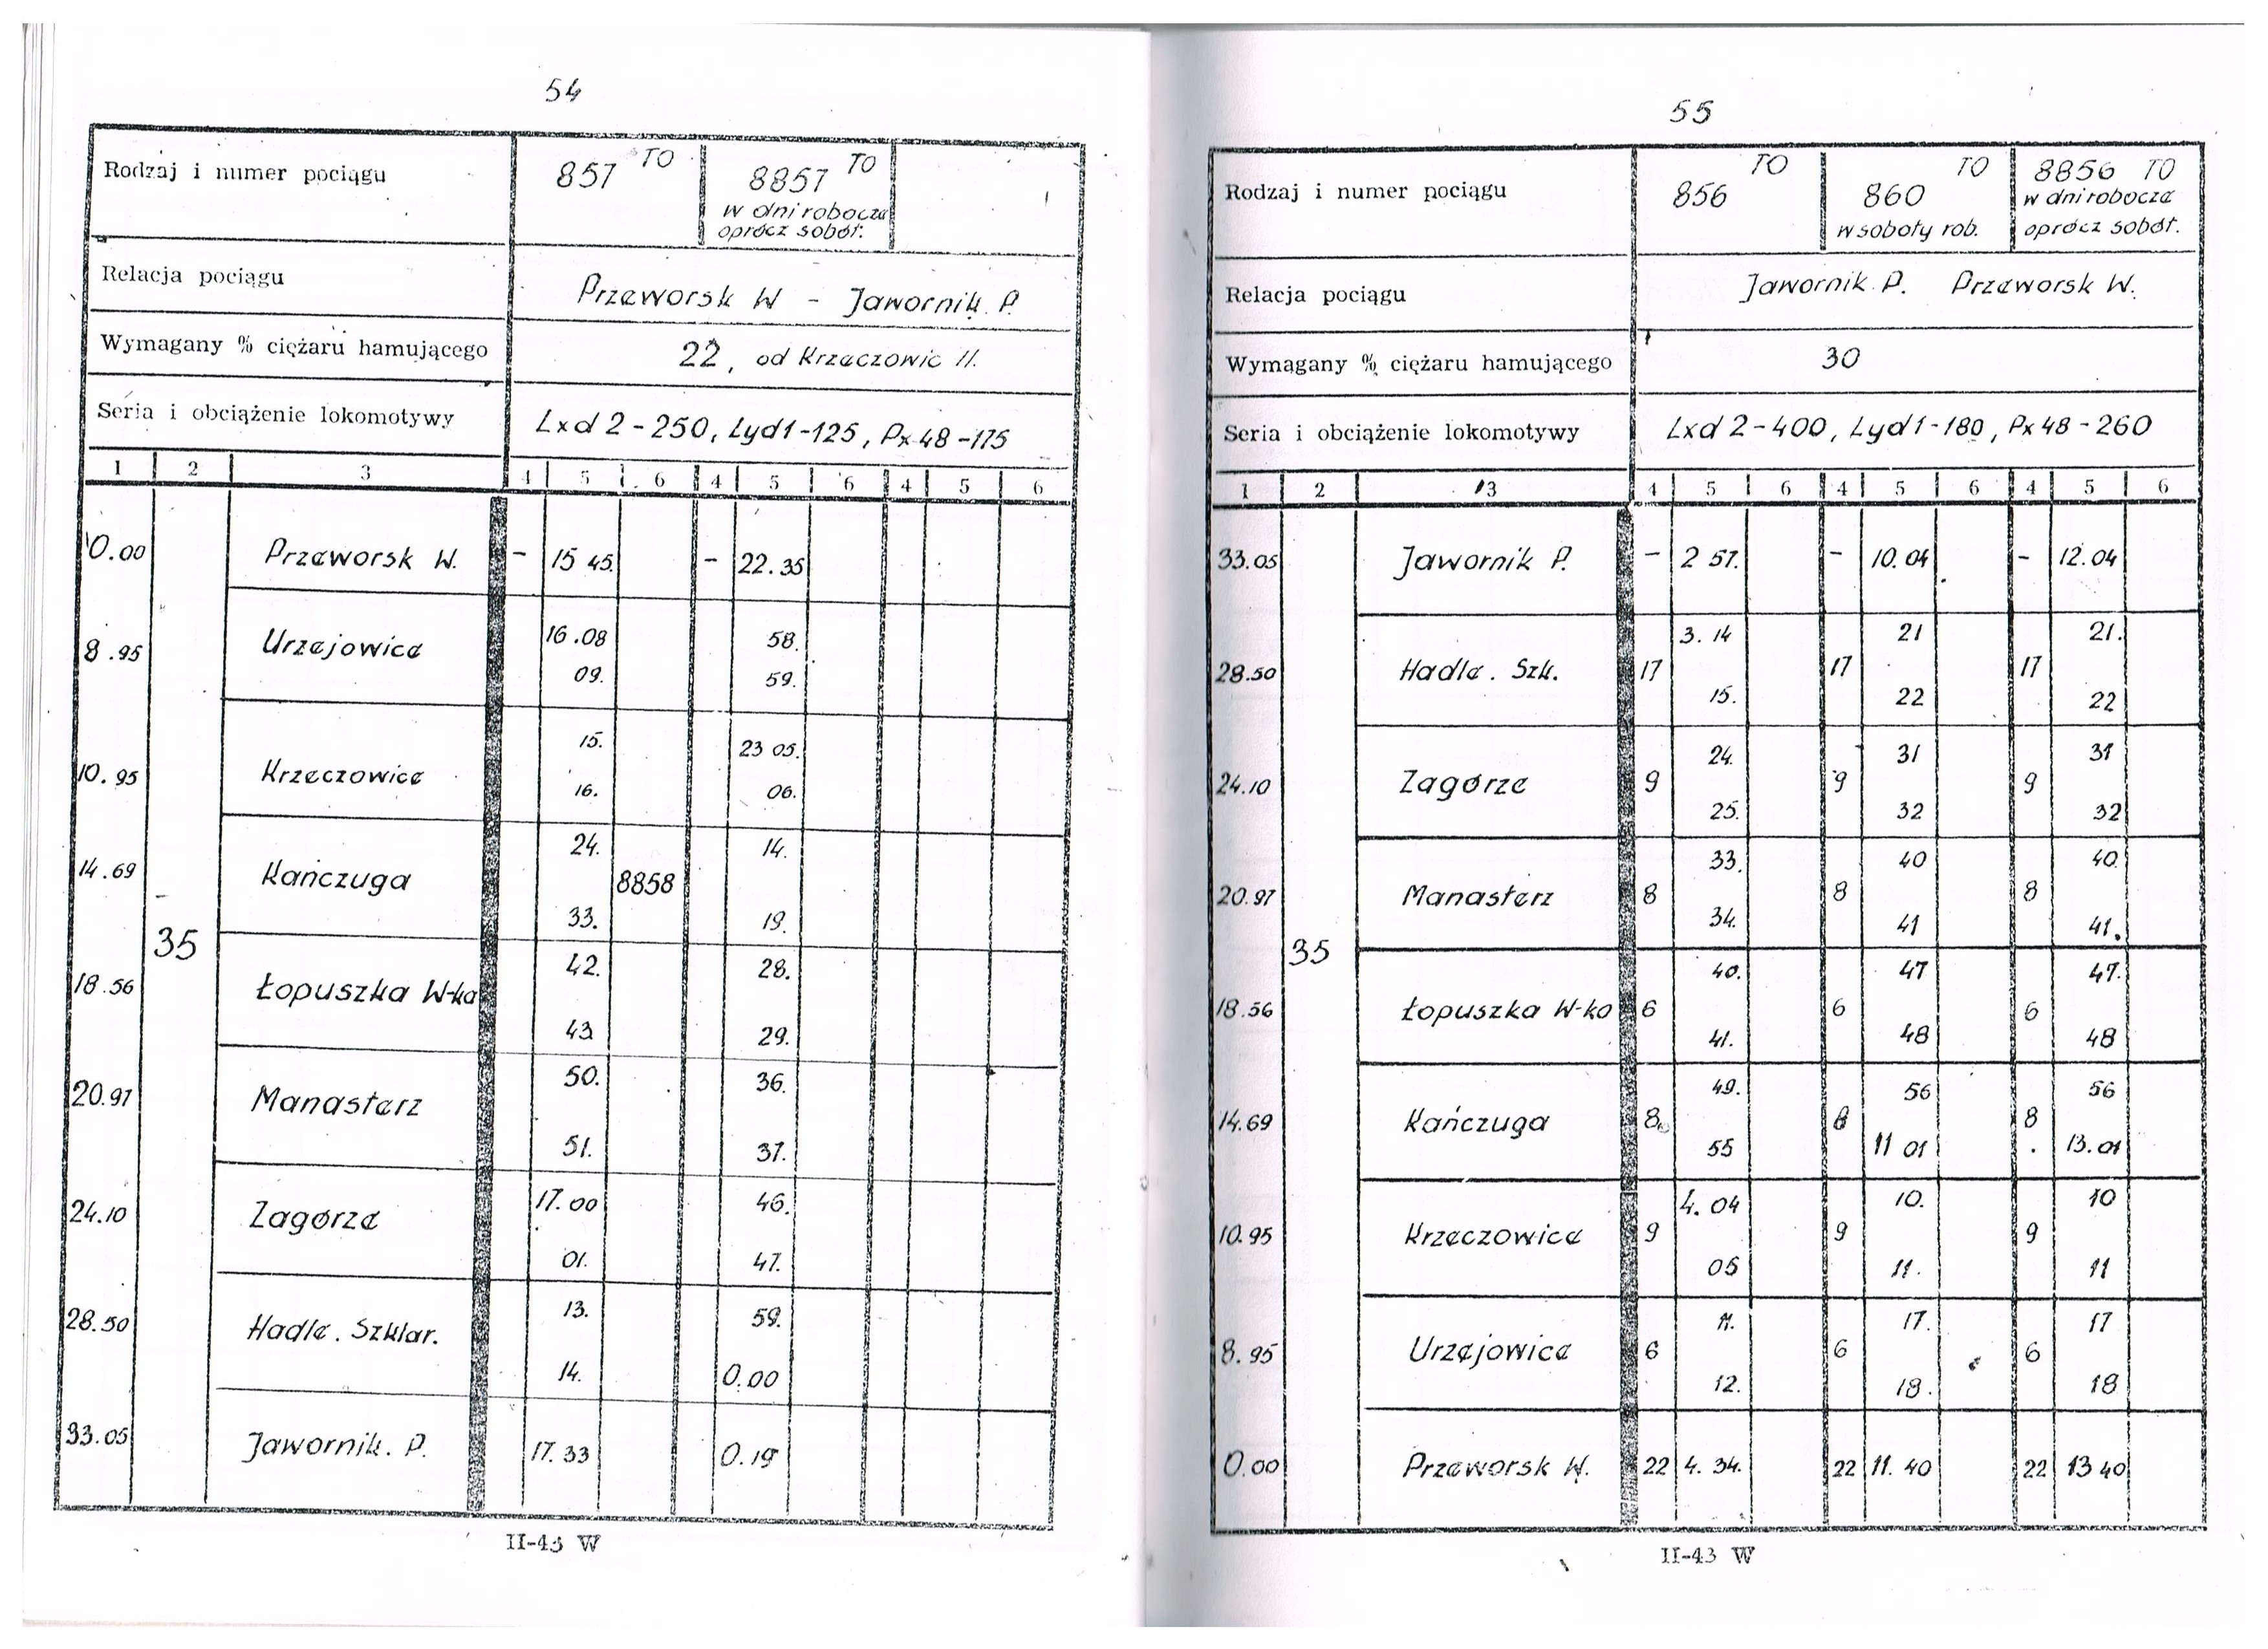 54
Rodzaj i numer pociągu 857 TO 8857 TO
w dni robocze
oprócz sobót.
Relacja pociągu Przeworsk W - Jawornik P.
Wymagany % ciężaru hamującego 22, od Krzeczowic 11.
Seria i obciążenie lokomotywy Lxd 2-250, Lyd1-125, Px 48-175
1 2 3 4 5 6 4 5 6 4 5 6
0.00 Przeworsk W. - 15 45. - 22.35
16.08 58.
8.95 Urzejowice
09. 59.
15. 23 05.
10.95 Krzeczowice
16. 06.
24. 14.
14.69 Kańczuga 8858
33. 19.
35
42. 28.
18.56 Łopuszka W-ka
43 29.
50. 36.
20.97 Manasterz
51. 37.
17.00 46.
24.10 Zagórze
01. 47.
13. 59.
28.50 Hadle. Szklar.
14. 0.00
33.05 Jawornik. P. 17.33 0.19
II-43 W
55
Rodzaj i numer pociągu 856 TO 860 TO 8856 TO
w soboty rob. w dni robocze
oprócz sobót.
Relacja pociągu Jawornik P. Przeworsk W.
Wymagany % ciężaru hamującego 30
Seria i obciążenie lokomotywy Lxd 2-400, Lyd1-180, Px 48-260
1 2 3 4 5 6 4 5 6 4 5 6
33.05 Jawornik P. - 2 57. - 10.04 - 12.04
3.14 21 21.
28.50 Hadle. Szk. 17 17 17
15. 22 22
24. 31 31
24.10 Zagórze 9 9 9
25. 32 32
33. 40 40
20.97 Manasterz 8 8 8
34. 41 41.
35
40. 47 47.
18.56 Łopuszka W-ka 6 6 6
41. 48 48
49. 56 56
14.69 Kańczuga 8 8 8
55 11 01 13.01
4.04 10. 10
10.95 Krzeczowice 9 9 9
05 11. 11
11. 17. 17
8.95 Urzejowice 6 6 6
12. 18. 18
0.00 Przeworsk W. 22 4.34. 22 11.40 22 13 40
II-43 W